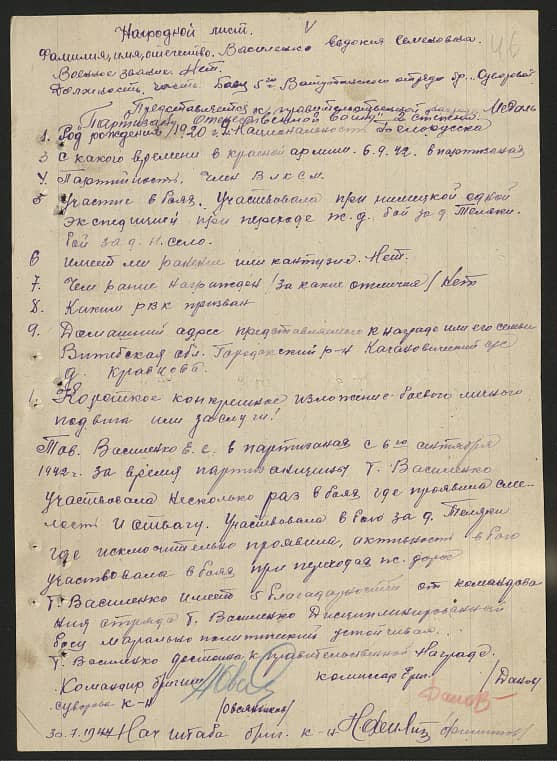 Наградной лист.
46
Фамилия, имя, отчество. Василенко Евдокия Семеновна.
Военное звание Нет.
Должность, часть Боец 5го Ватутинского отряда бр. Суворова
Представляется к правительственной награде Медаль
"Партизану Отечественной войны" степени
1. Год рождения 1920 г. 2. Национальность Белорусска
3 С какого времени в красной армии. 6.9.42. в партизанах
4 Партийность. Член ВЛКСМ.
5 Участие в боях. Участвовала при немецкой одной
экспедицией при переходе ж.д. бой за д. Теляки.
бой за д. Н. Село.
6 имеет ли ранения или кантузии. Нет.
7. Чем ранее награжден /за какие отличия/ Нет
8. Каким РВК призван
9. Домашний адрес представляемого к награде или его семьи
Витебская обл. Городокский р-н
д. Кравцова.
1. Короткое конкретное изложение боевого личного
подвига или заслуги!
Тов. Василенко Е.С. в партизанах с 6го сентября
1942 г. за время партизанщины Т. Василенко
участвовала несколько раз в боях где проявила сме-
лость и отвагу. Участвовала в бою за д. Теляки
где исключительно проявила, активность в бою
участвовала в боях при переходах ж. дорог
Т. Василенко имеет 5 благодарностей от командова
ния отряда Т. Василенко Дисциплинированный
боец маральнополитический устойчивая.
Т. Василенко достойна к правительственной Награде.
Командир бригады комиссар бриг. /Данов/
Суворова к-н /Овсянников/ Данов
30.7.1944 Нач штаба бриг. к-н